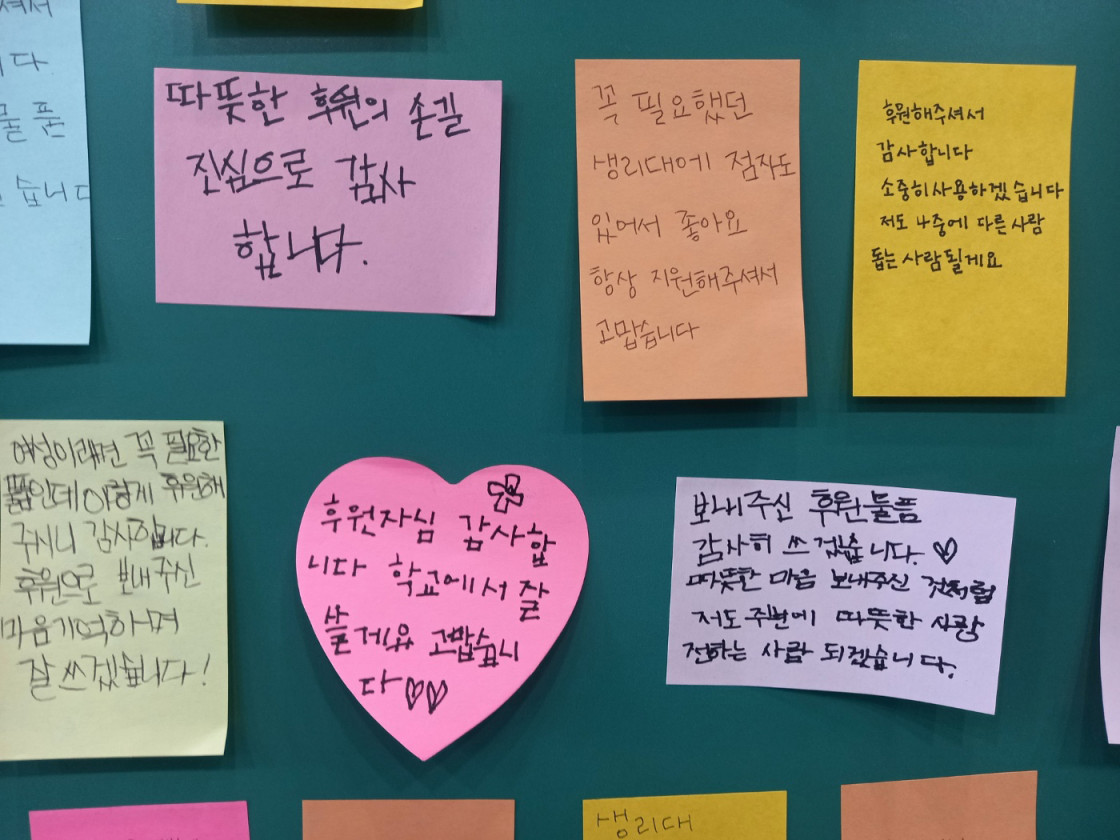 셔서
니다.
물품
습니다
따뜻한 후원의 손길
진심으로 감사
합니다.
꼭 필요했던
생리대에 점자도
있어서 좋아요
항상 지원해주셔서
고맙습니다
후원해주셔서
감사합니다
소중히사용하겠습니다
저도 나중에 다른사람
돕는사람될게요
여성이라면 꼭 필요한
인데 이렇게 후원해
주시니 감사합니다.
후원으로 보내주신
마음기억하며
잘쓰겠습니다!
후원자님 감사합
니다 학교에서 잘
쓸게요 고맙습니
다♡♡
보내주신 후원물품
감사히 쓰겠습니다.♡
따뜻한 마음 보내주신 것처럼
저도주변에 따뜻한 사랑
전하는 사람 되겠습니다.
생리대